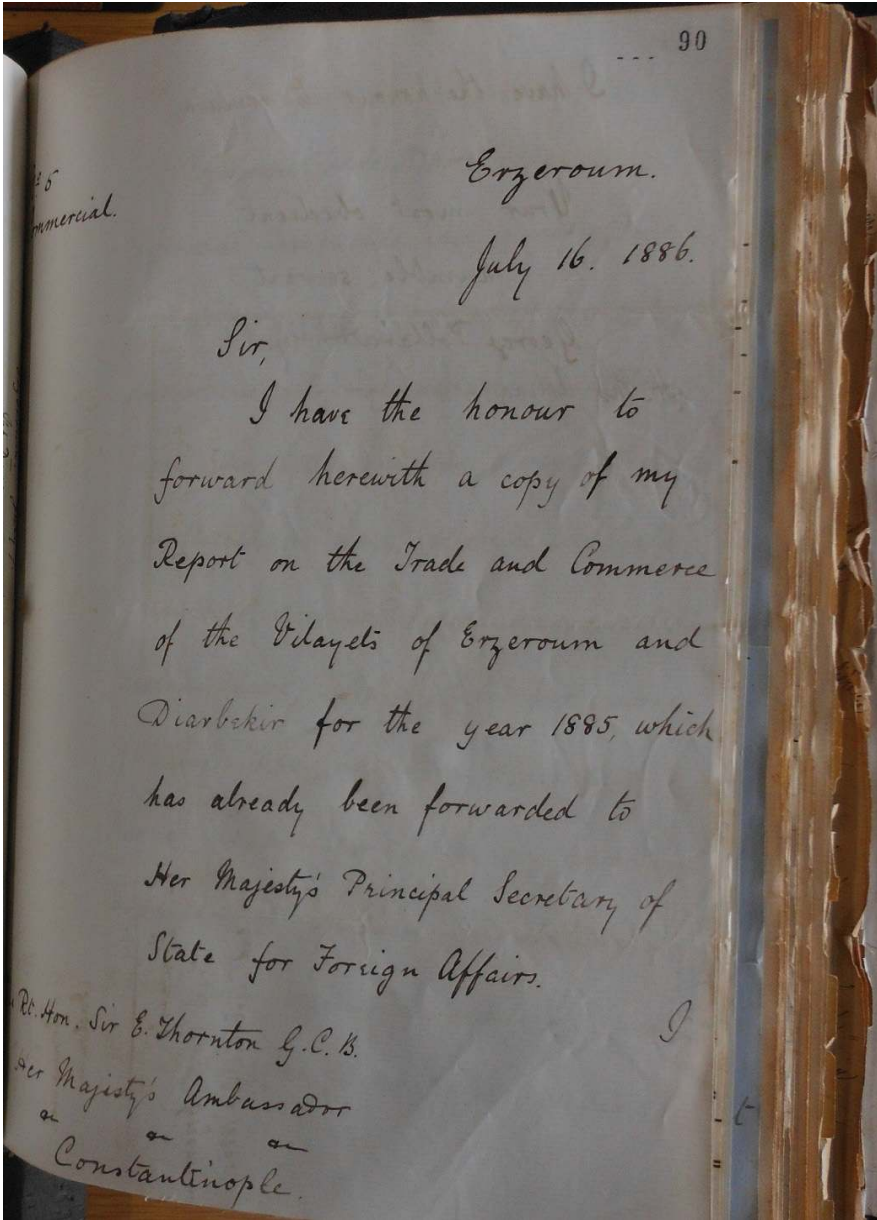 90
№ 6
Commercial.
Erzeroum.
July 16. 1886.
Sir,
I have the honour to
forward herewith a copy of my
Report on the Trade and Commerce
of the Vilayets of Erzeroum and
Diarbekir for the year 1885, which
has already been forwarded to
Her Majesty's Principal Secretary of
State for Foreign Affairs.
I
Rt. Hon. Sir E. Thornton G.C.B.
Her Majesty's Ambassador
Constantinople.